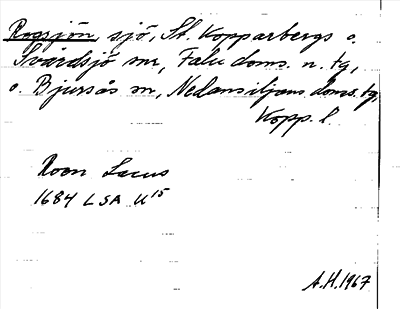 Rogsjön, sjö, St. Kopparbergs o.
Svärdsjö snr, Falu doms. n. tg,
o. Bjursås sn, Nedansiljans doms. tg,
Kopp. l.
Roon Lacus
1684 LSA U15
A.H. 1967